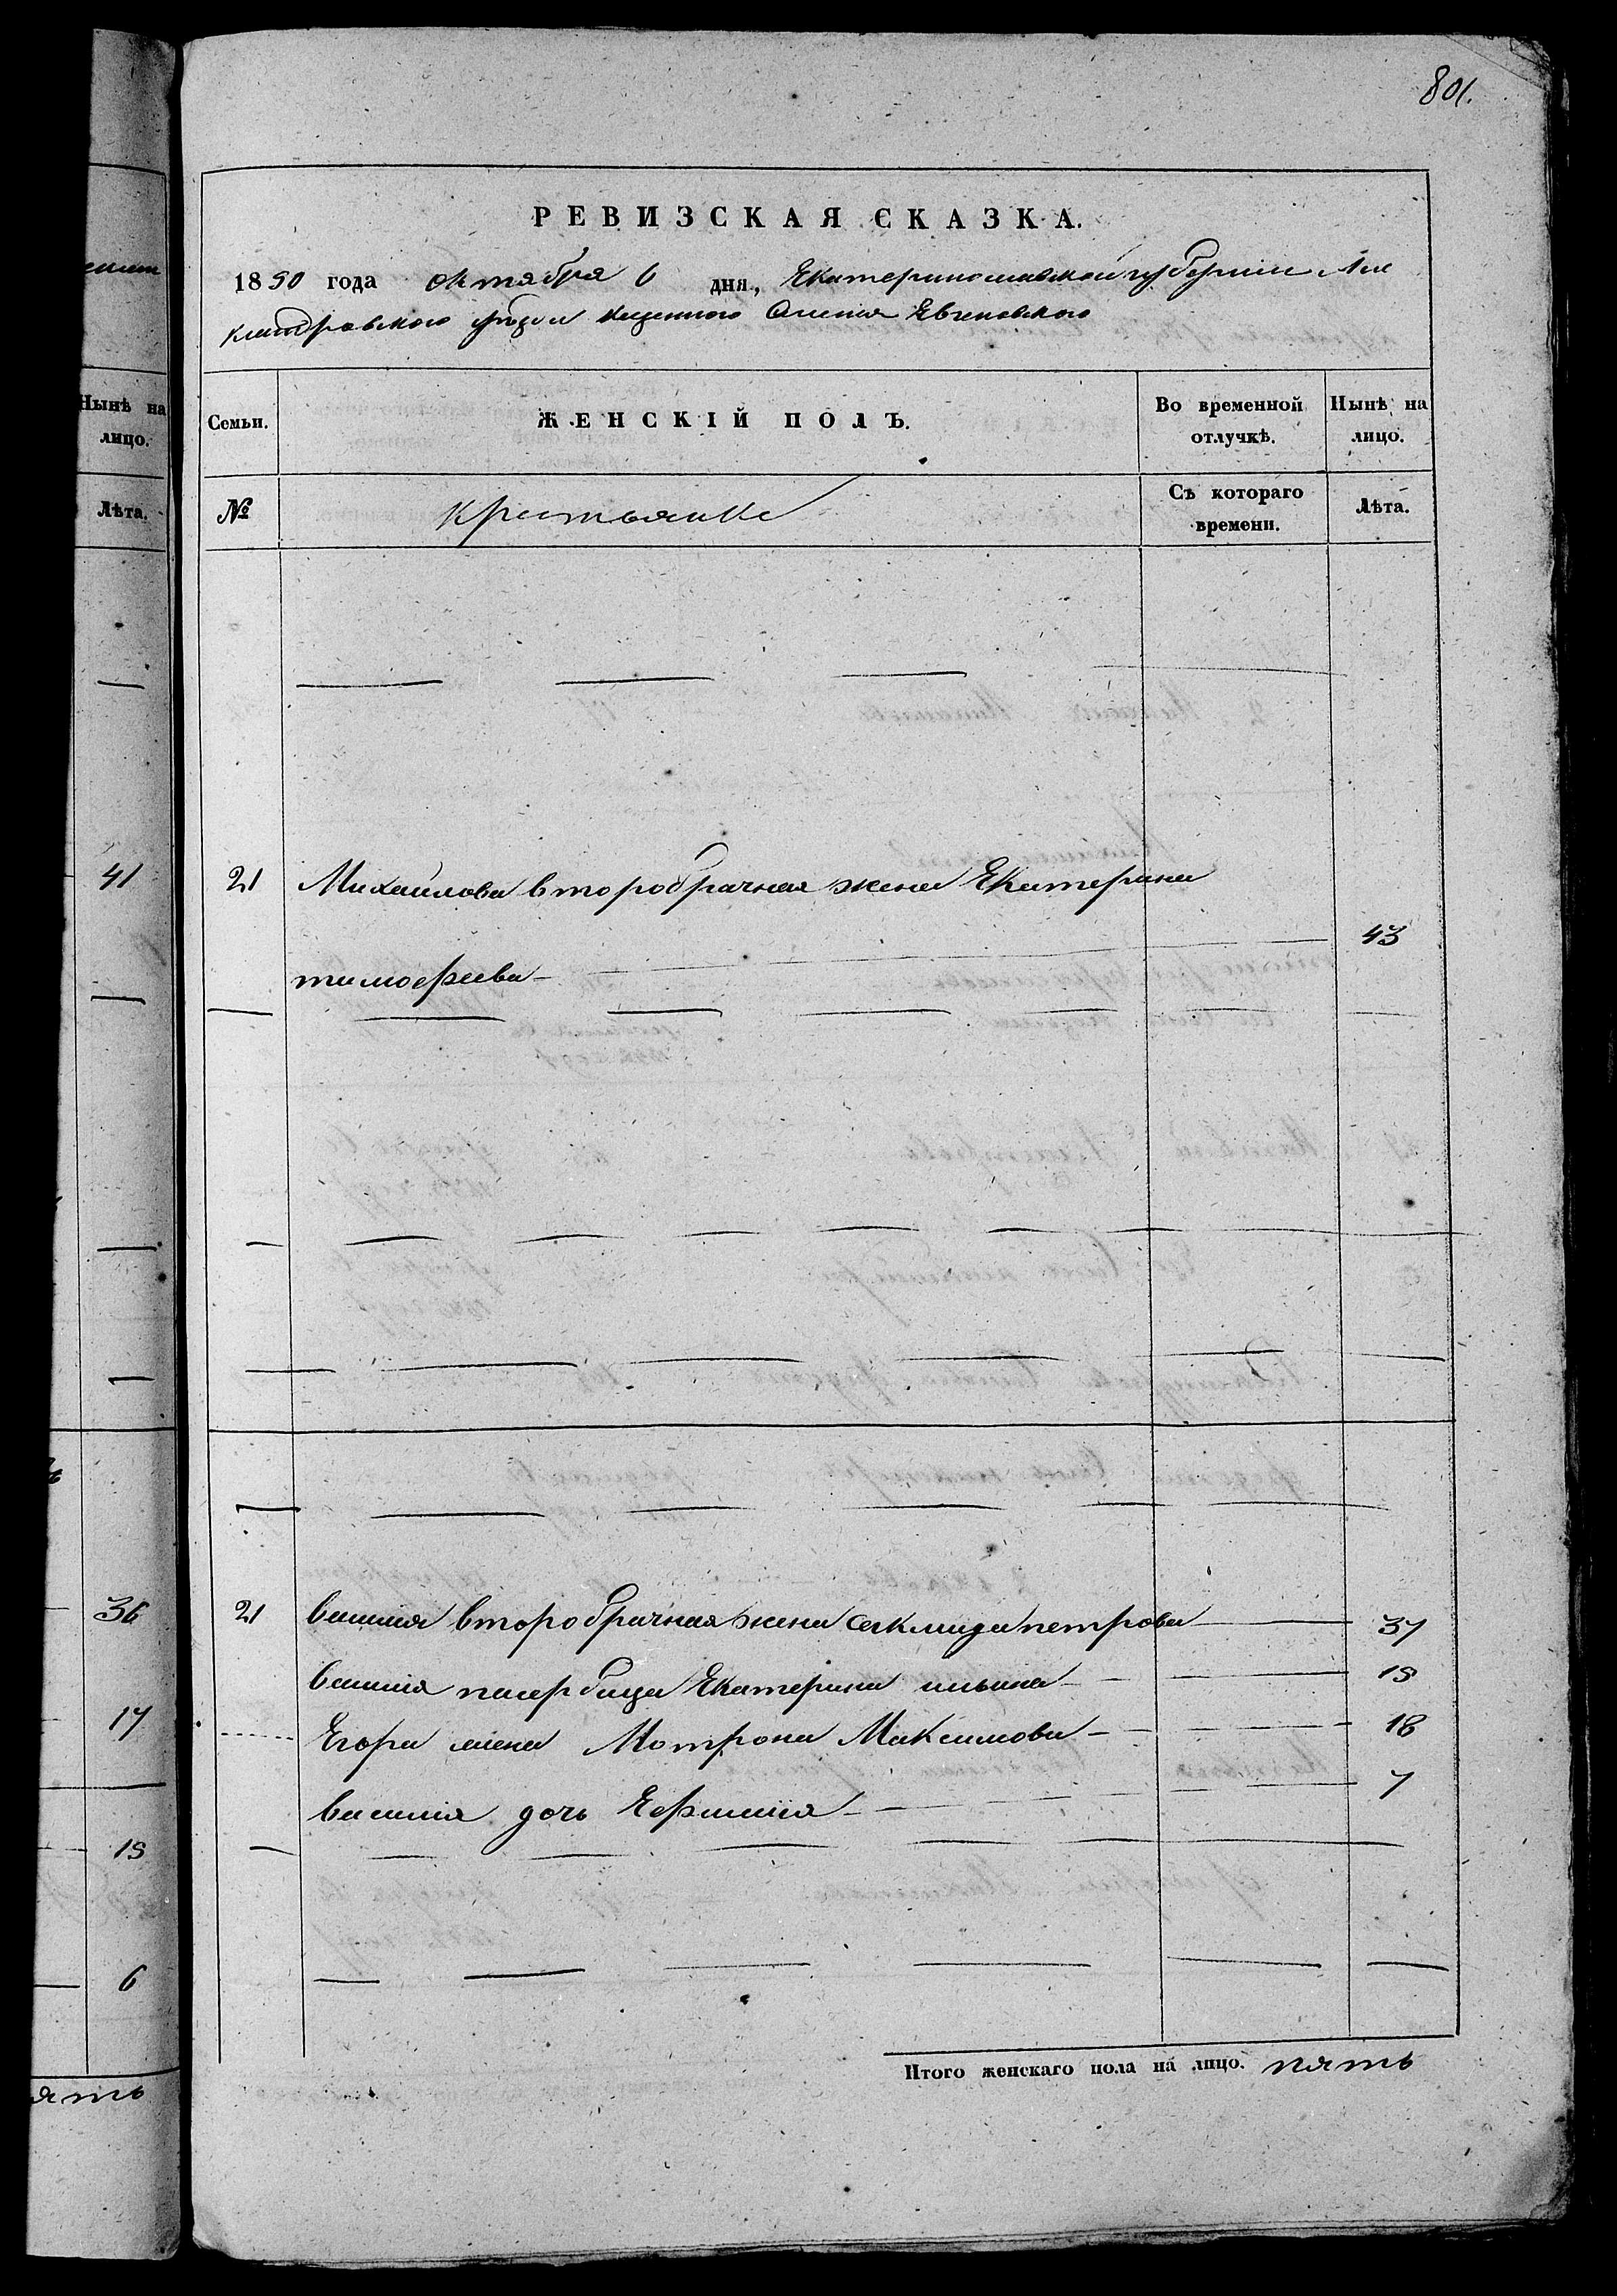 801.
РЕВИЗСКАЯ СКАЗКА.
1850 года октября 6 дня, Екатеринославской губернии Але
ксандровского уезда казенного Селения Евченовского
Семьи. ЖЕНСКІЙ ПОЛЪ. Во временной отлучкѣ. Нынѣ на лицо.
№ крестьянке Съ котораго времени. Лѣта.
21 Михайлова второбрачная жена Екатерина
тимофеева 43
21 василия второбрачная жена петрова 37
василия пасербица Екатерина ильина 15
Егора жена Мотрона Максимова 18
василия дочь Ефимия 7
Итого женскаго пола на лицо. пять
Нынѣ на
лицо.
Лѣта.
41
36
17
15
6
ять